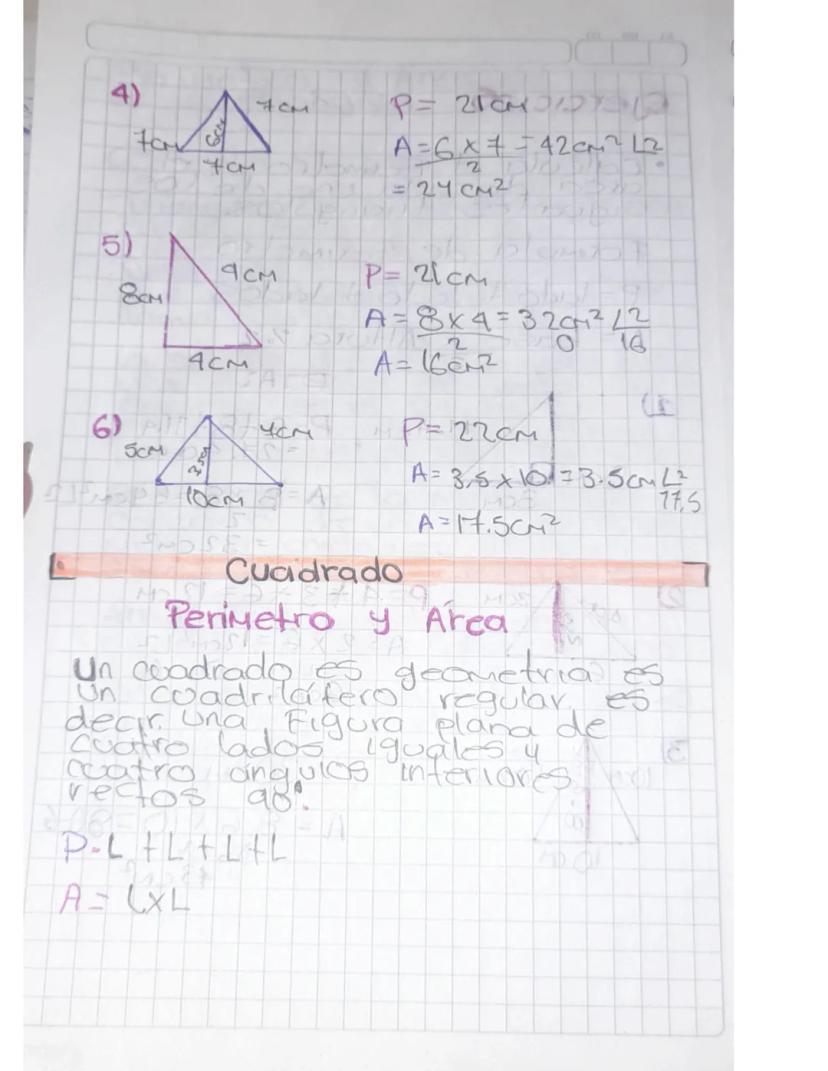 4)
7cm
7cm
6cm
7cm
P = 21cm
A = 6 x 7 = 42cm² ∟2
2
= 24cm²
5)
8cm
9cm
4cm
P = 21cm
A = 8 x 4 = 32cm² ∟2
2 0 16
A = 16cm²
6)
5cm
7cm
3.5cm
10cm
P = 22cm
A = 3.5 x 10 = 3.5cm ∟2
17.5
A = 17.5cm²
Cuadrado
Perimetro y Área
Un cuadrado es geometria es
un cuadrilátero regular, es
decir, una Figura plana de
cuatro lados iguales y
cuatro ángulos interiores
rectos 90°.
P = L + L + L + L
A = L x L